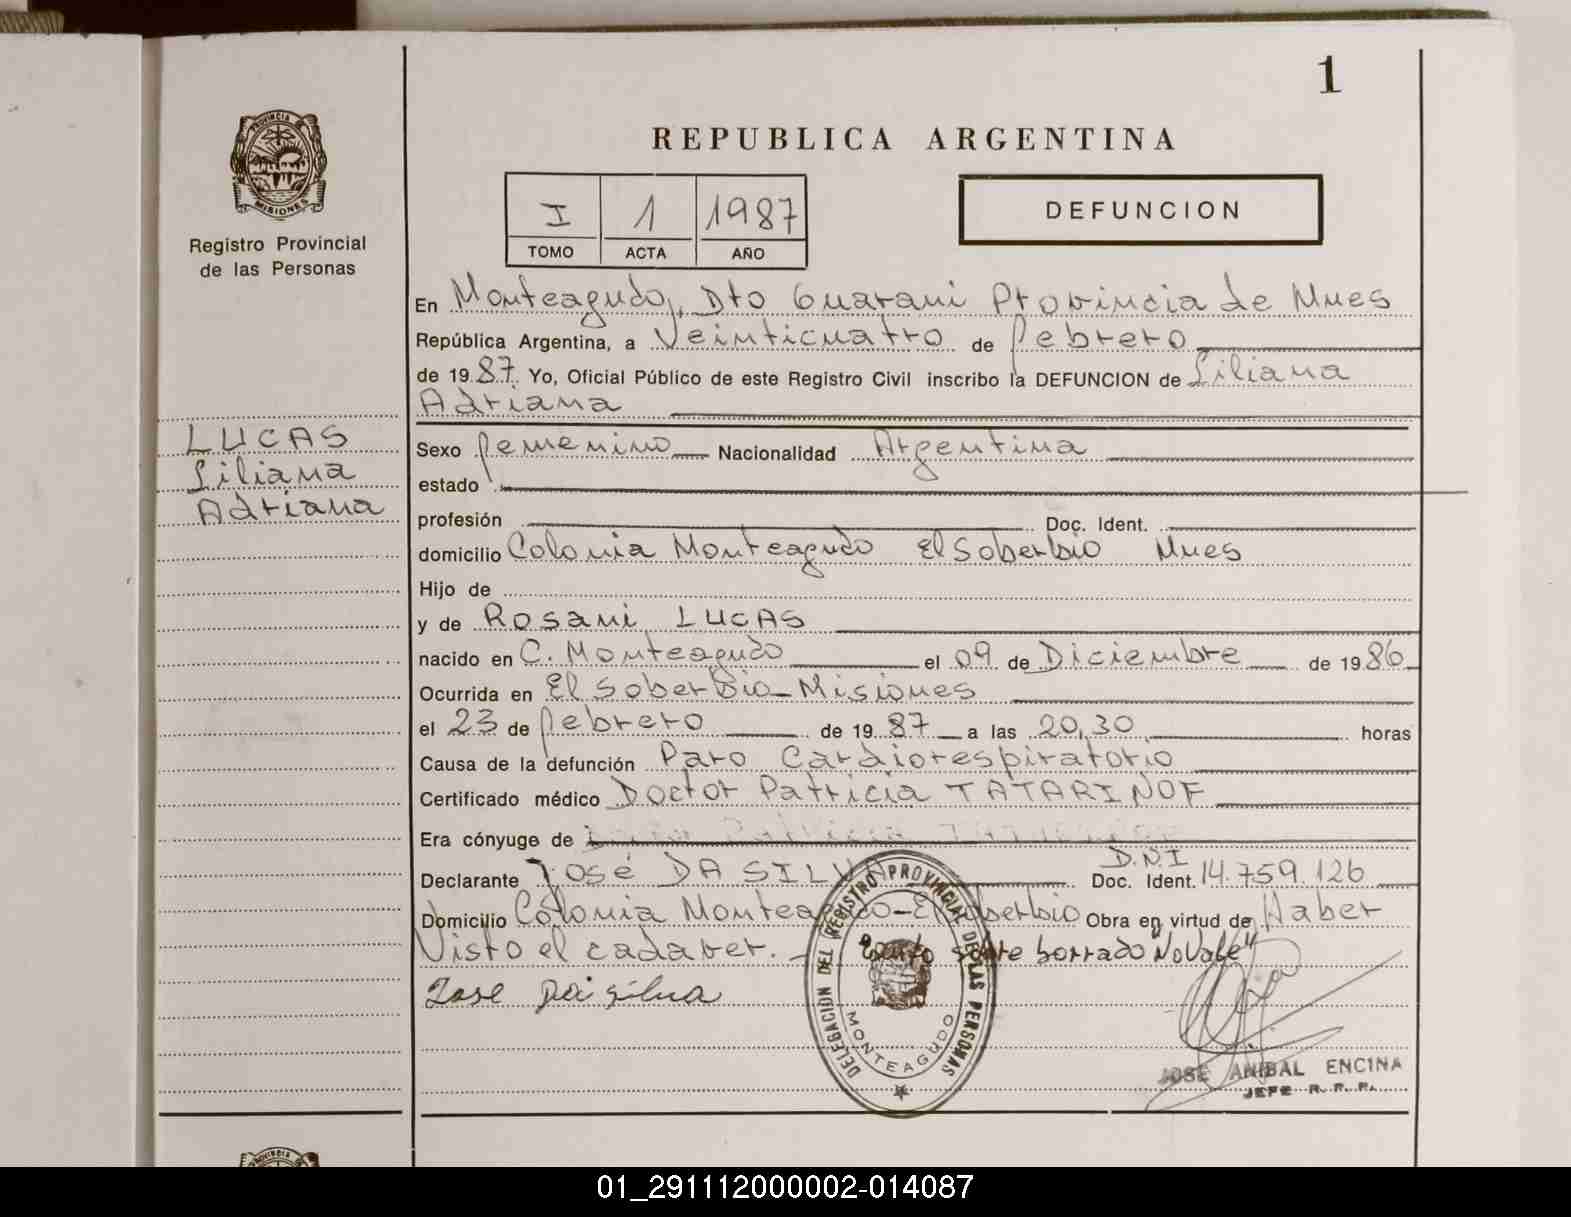 1
PROVINCIA DE
MISIONES
Registro Provincial
de las Personas
REPUBLICA ARGENTINA
I 1 1987
TOMO ACTA AÑO
DEFUNCION
En Monteagudo, Dto Guarani Provincia de Mnes
República Argentina, a Veinticuatro de febrero
de 1987. Yo, Oficial Público de este Registro Civil inscribo la DEFUNCION de Liliana
Adriana
LUCAS
Liliana
Adriana
Sexo femenino Nacionalidad Argentina
estado
profesión Doc. Ident.
domicilio Colonia Monteagudo El Soberbio Mnes
Hijo de
y de Rosani LUCAS
nacido en C. Monteagudo el 09 de Diciembre de 1986
Ocurrida en El Soberbio - Misiones
el 23 de febrero de 1987 a las 20,30 horas
Causa de la defunción Paro Cardiorespiratorio
Certificado médico Doctor Patricia TATARINOF
Era cónyuge de
Declarante José DA SILVA D.N.I Doc. Ident. 14.759.126
Domicilio Colonia Monteagudo - El Soberbio Obra en virtud de Haber
Visto el cadaver. - sobre borrado No Vale"
Jose Da silva
DELEGACION DEL REGISTRO PROVINCIAL DE LAS PERSONAS
MONTEAGUDO
JOSE ANIBAL ENCINA
JEFE R. P. P.
PROVINCIA DE
01_291112000002-014087